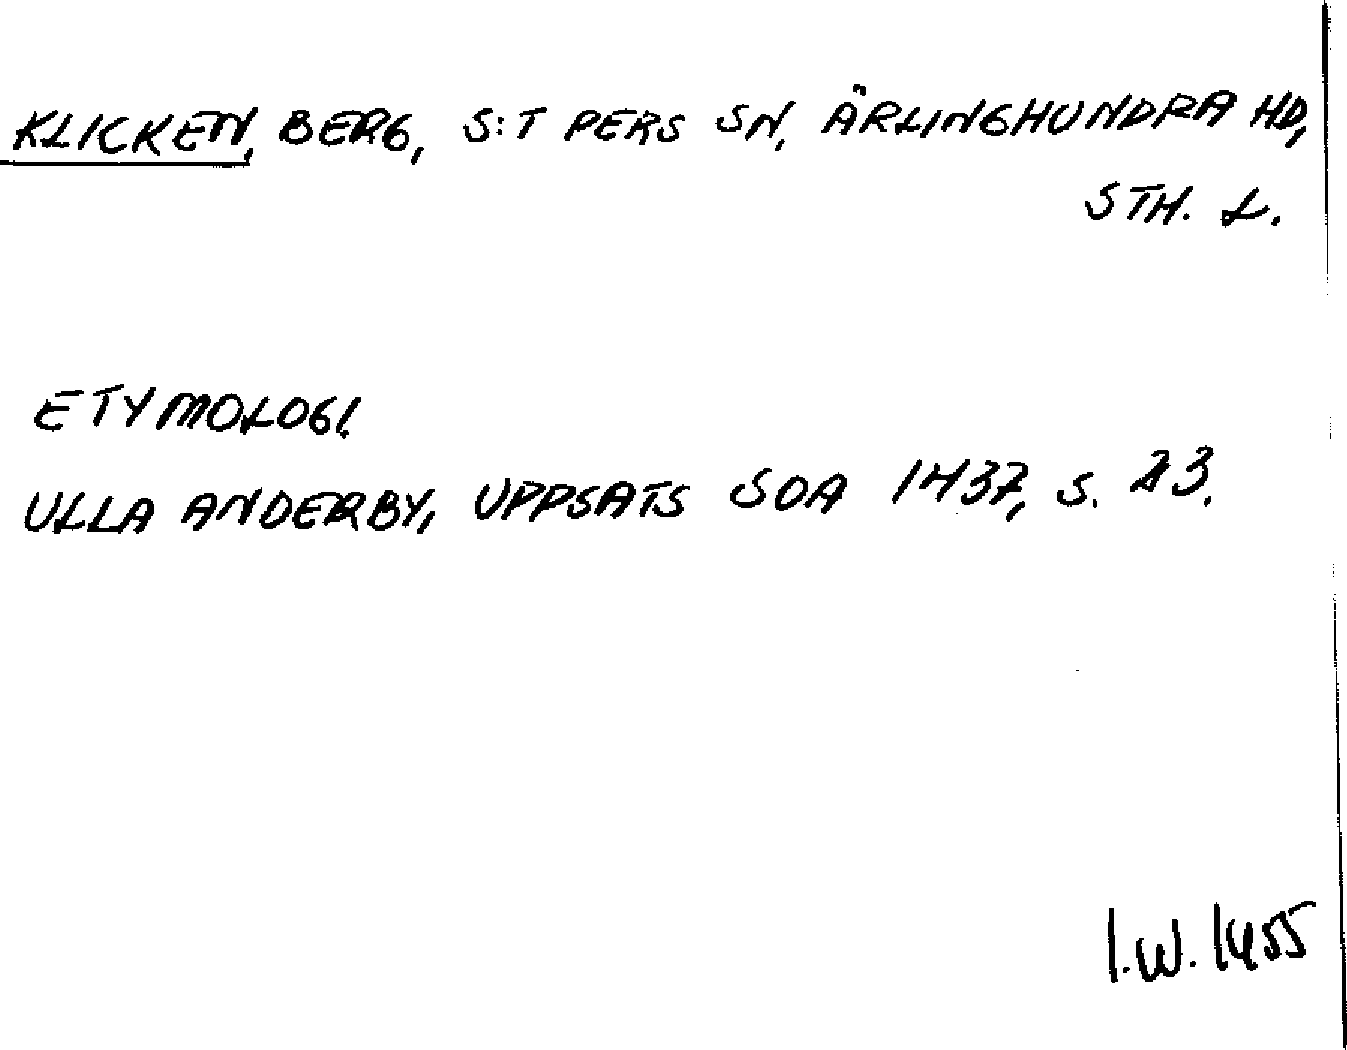 KLICKEN, BERG, S:T PERS SN, ÄRLINGHUNDRA HD,
STH. L.
ETYMOLOGI.
ULLA ANDERBY, UPPSATS SOA 1437, S. 23.
I.W. 1455